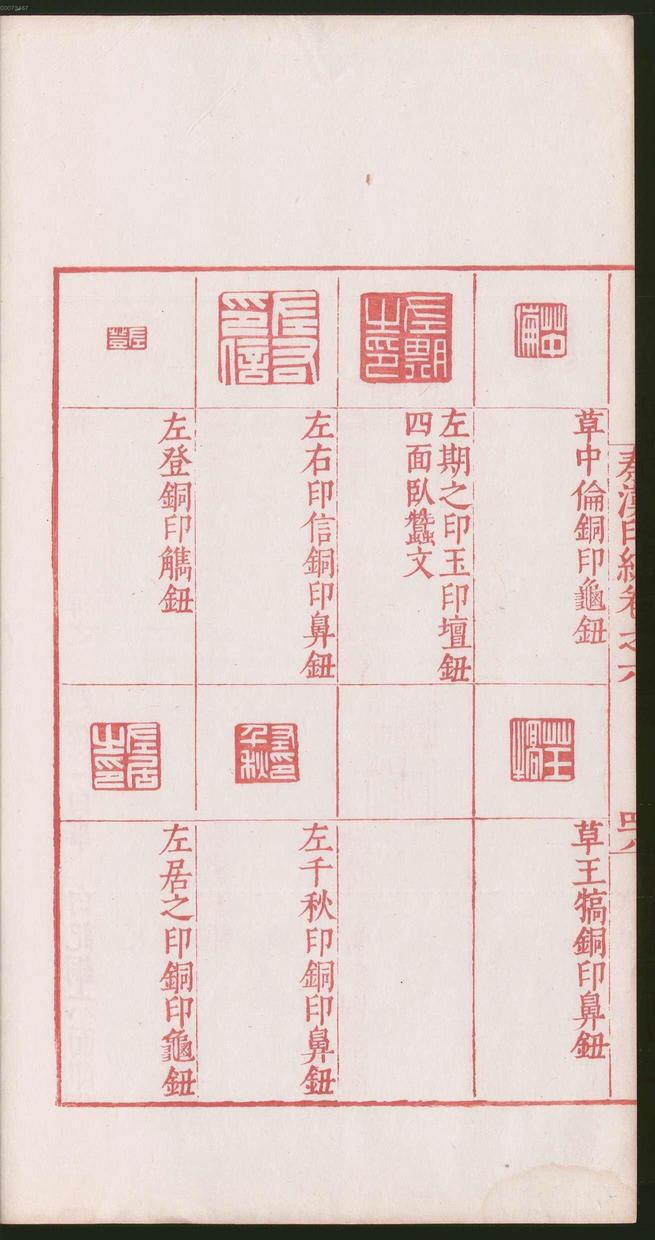 秦漢印統卷之六
草中倫銅印龜鈕
左期之印玉印壇鈕
四面臥蠶文
左右印信銅印鼻鈕
左登銅印觹鈕
草王犒銅印鼻鈕
左千秋印銅印鼻鈕
左居之印銅印龜鈕